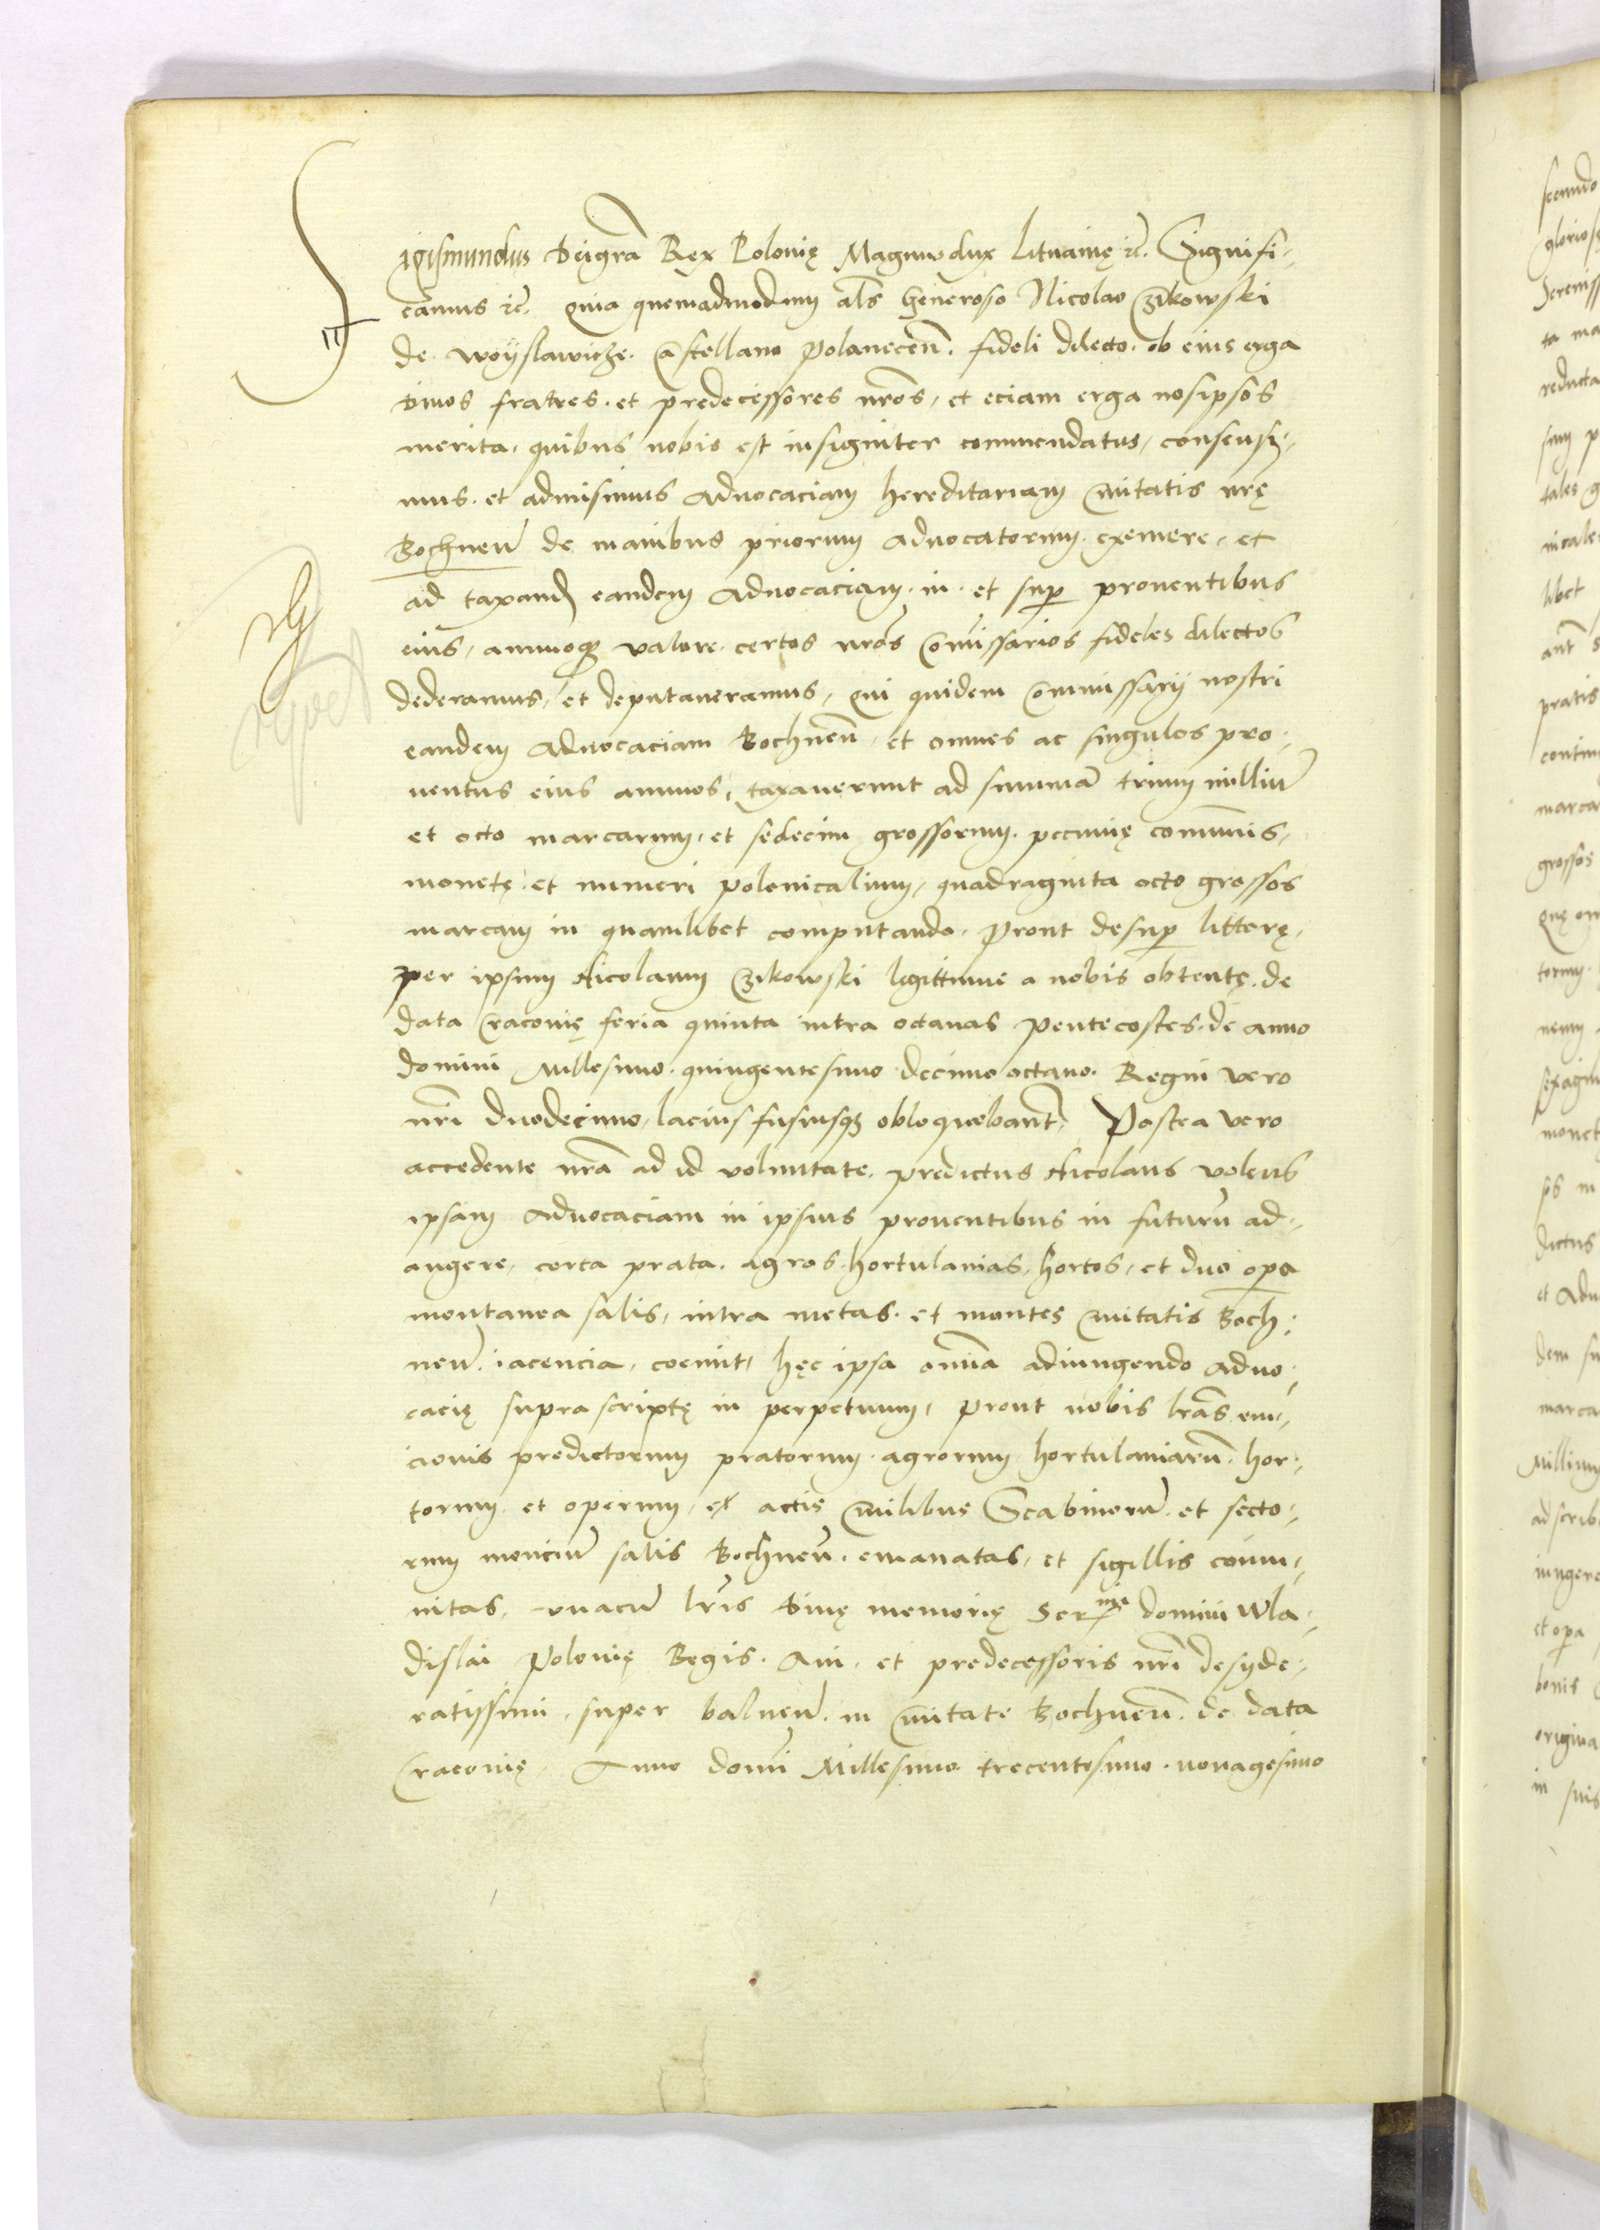 Sigismundus Dei grã Rex Polonię Magnus dux Lituanię zc̃. Signifi-
camus zc̃. quia quemadmodum als̃ Generoso Nicolao Czikowski
de woyslawicze. Castellano Polanecen̄. fideli dilecto. ob eius erga
divos fratres. et predecessores nros̃, et eciam erga nosipsos
merita, quibus nobis est insigniter commendatus, consensi-
mus. et admisimus Advocaciam hereditariam Civitatis nrę̃
Bochnen̄ de manibus priorum advocatorum. exemere, et
ad taxand eandem Advocaciam. in. et sup proventibus
eius, annuoq3 valore. certos nros̃ Com̃issarios fideles dilectos
dederamus, et deputaveramus, qui quidem Commissarij nostri
eandem Advocaciam Bochnen̄, et omnes ac singulos pro-
ventus eius annuos, taxaverunt ad summã trium milliũ
et octo marcarum, et sedecim grossorum. pecunię com̃unis,
monetę et numeri polonicalium, quadraginta octo grossos
marcam in quamlibet computando. Prout desup litterę,
per ipsum Nicolaum Czikowski legittime a nobis obtentę. de
data Cracovię feria quinta intra octavas Pentecostes. de anno
domini Millesimo. quingentesimo decimo octavo. Regni vero
nrĩ duodecimo, lacius fusiusq3 obloquebant̃. Postea vero
accedente nrã ad id voluntate. predictus Nicolaus volens
ipsam Advocaciam in ipsius proventibus in futurũ ad-
augere, certa prata. agros. hortulanias, hortos, et duo opa
montanea salis, intra metas. et montes Civitatis Boch-
nen̄. iacencia, coemit, hęc ipsa omia adiungendo advo-
cacię supra scriptę in perpetuum, prout nobis lras̃ em-
cionis predictorum pratorum. agrorum hortulaniarũ. hor-
torum et operum, ex actis Civilibus Scabinorũ. et secto-
rum monciũ salis Bochnen̄. emanatas, et sigillis com̃u-
nitas, unacũ lrĩs Divę memorię Ser^mi domini Wla-
dislai Polonię Regis. Avi. et predecessoris nrĩ desyde-
ratissimi, super balneũ. in Civitate Bochnen̄. de data
Cracovię, Anno domĩ Millesimo trecentesimo. nonagesimo